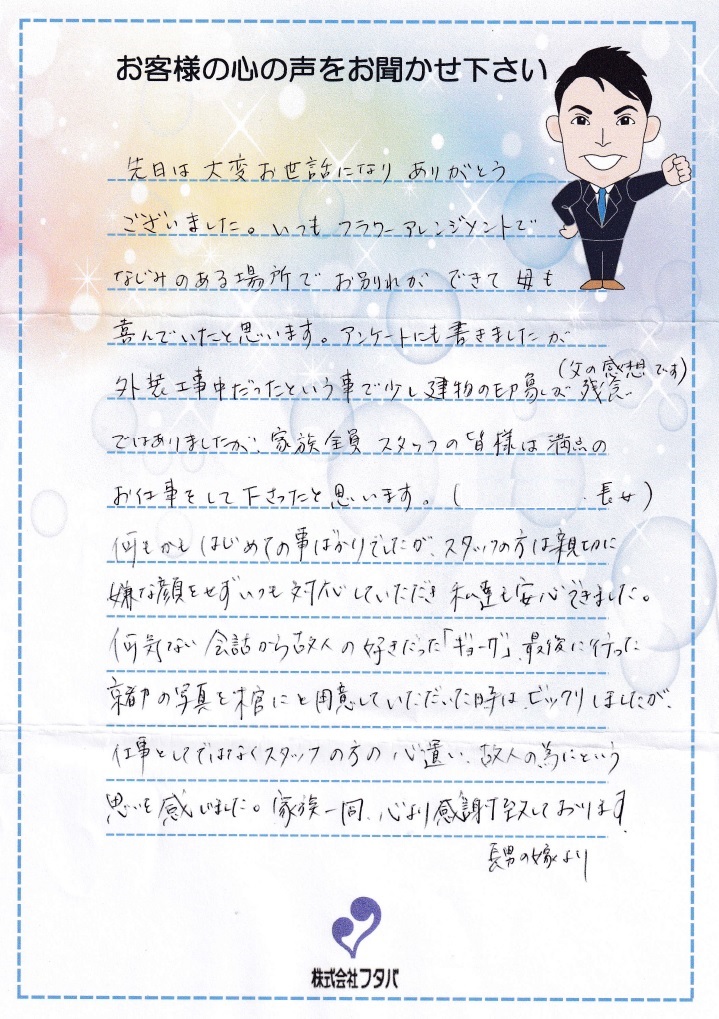 お客様の心の声をお聞かせ下さい
先日は大変お世話になりありがとう
ございました。いつもフラワーアレンジメントで
なじみのある場所でお別れができて母も
喜んでいたと思います。アンケートにも書きましたが
(父の感想です)
外装工事中だったという事で少し建物の印象が残念
ではありましたが、家族全員スタッフの皆様は満点の
お仕事をして下さったと思います。(　　　　　長女)
何もかもはじめての事ばかりでしたが、スタッフの方は親切に
嫌な顔をせずいつも対応していただき私達も安心できました。
何気ない会話から故人の好きだった「ギョーザ」、最後に行った
京都の写真を木官にと用意していただいた時は、ビックリしましたが、
仕事としてではなくスタッフの方の心遣い、故人の為にという
思いを感じました。家族一同、心より感謝致しております。
長男の嫁より
株式会社フタバ